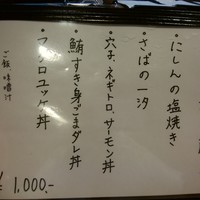 ・にしんの塩焼き
・さばの一汐
・穴子、ネギトロ、サーモン丼
・鮪すき身ごまダレ丼
・マグロユッケ丼
ご飯 味噌汁
¥1,000-